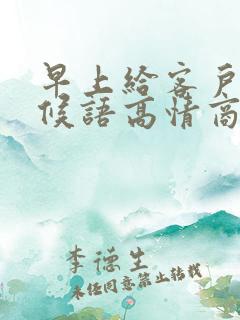 早上給客戶
候語高情商
李德生
未经同意禁止转载